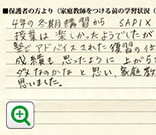 ■保護者の方より（家庭教師をつける前の学習状況（
4年の冬期講習から SAPIX
授業は楽しかったようでしたが
塾でアドバイスされた復習の仕
成績も思ったように上がらす
ダメなのかなと思い、家庭教
思いました。